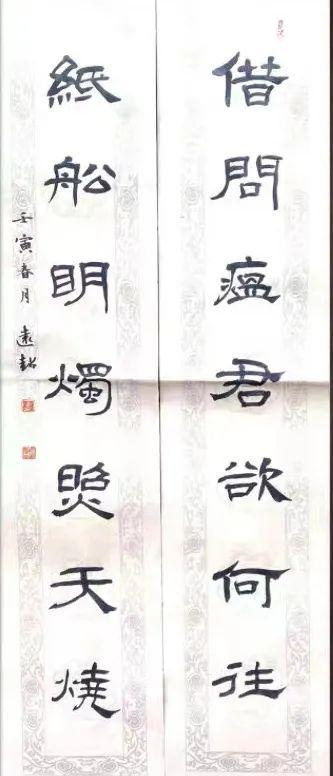 借問瘟君欲何往
紙船明燭照天燒
壬寅春月